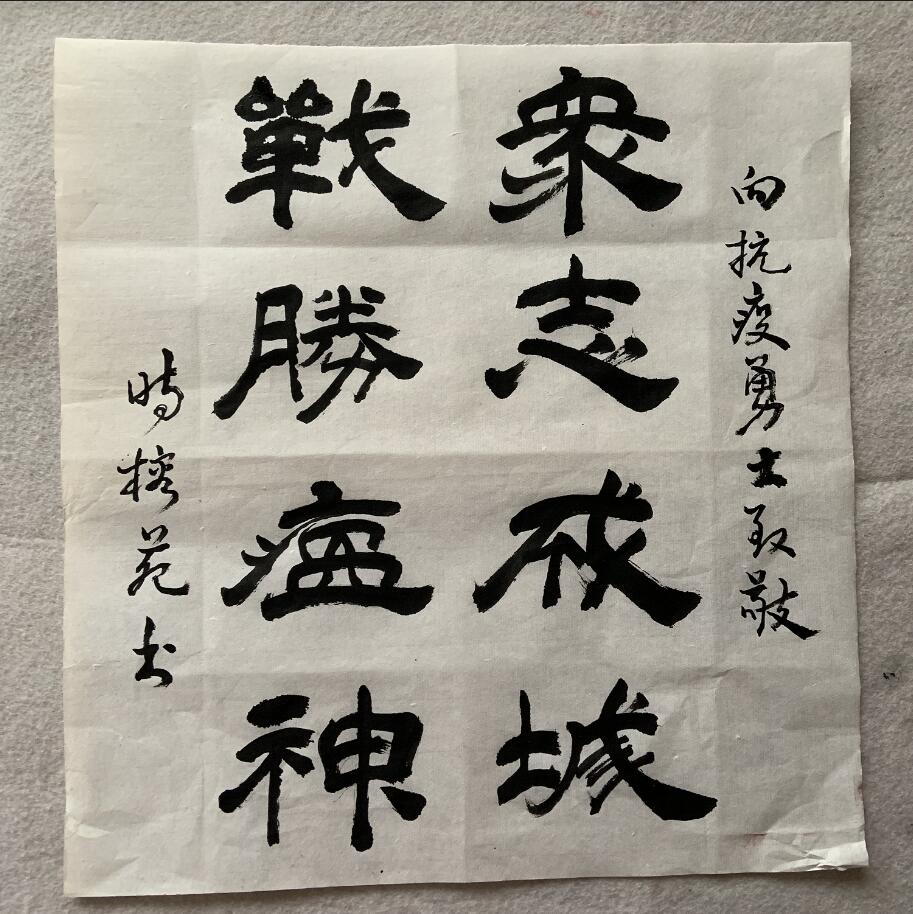 向抗疫勇士致敬
衆志成城
戰勝瘟神
時榕苑书